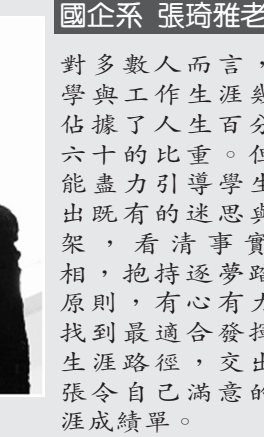 國企系 張琦雅老
對多數人而言，
學與工作生涯幾
佔據了人生百分
六十的比重。但
能盡力引導學生
出既有的迷思與
架，看清事實
相，抱持逐夢踏
原則，有心有力
找到最適合發揮
生涯路徑，交出
張令自己滿意的
涯成績單。